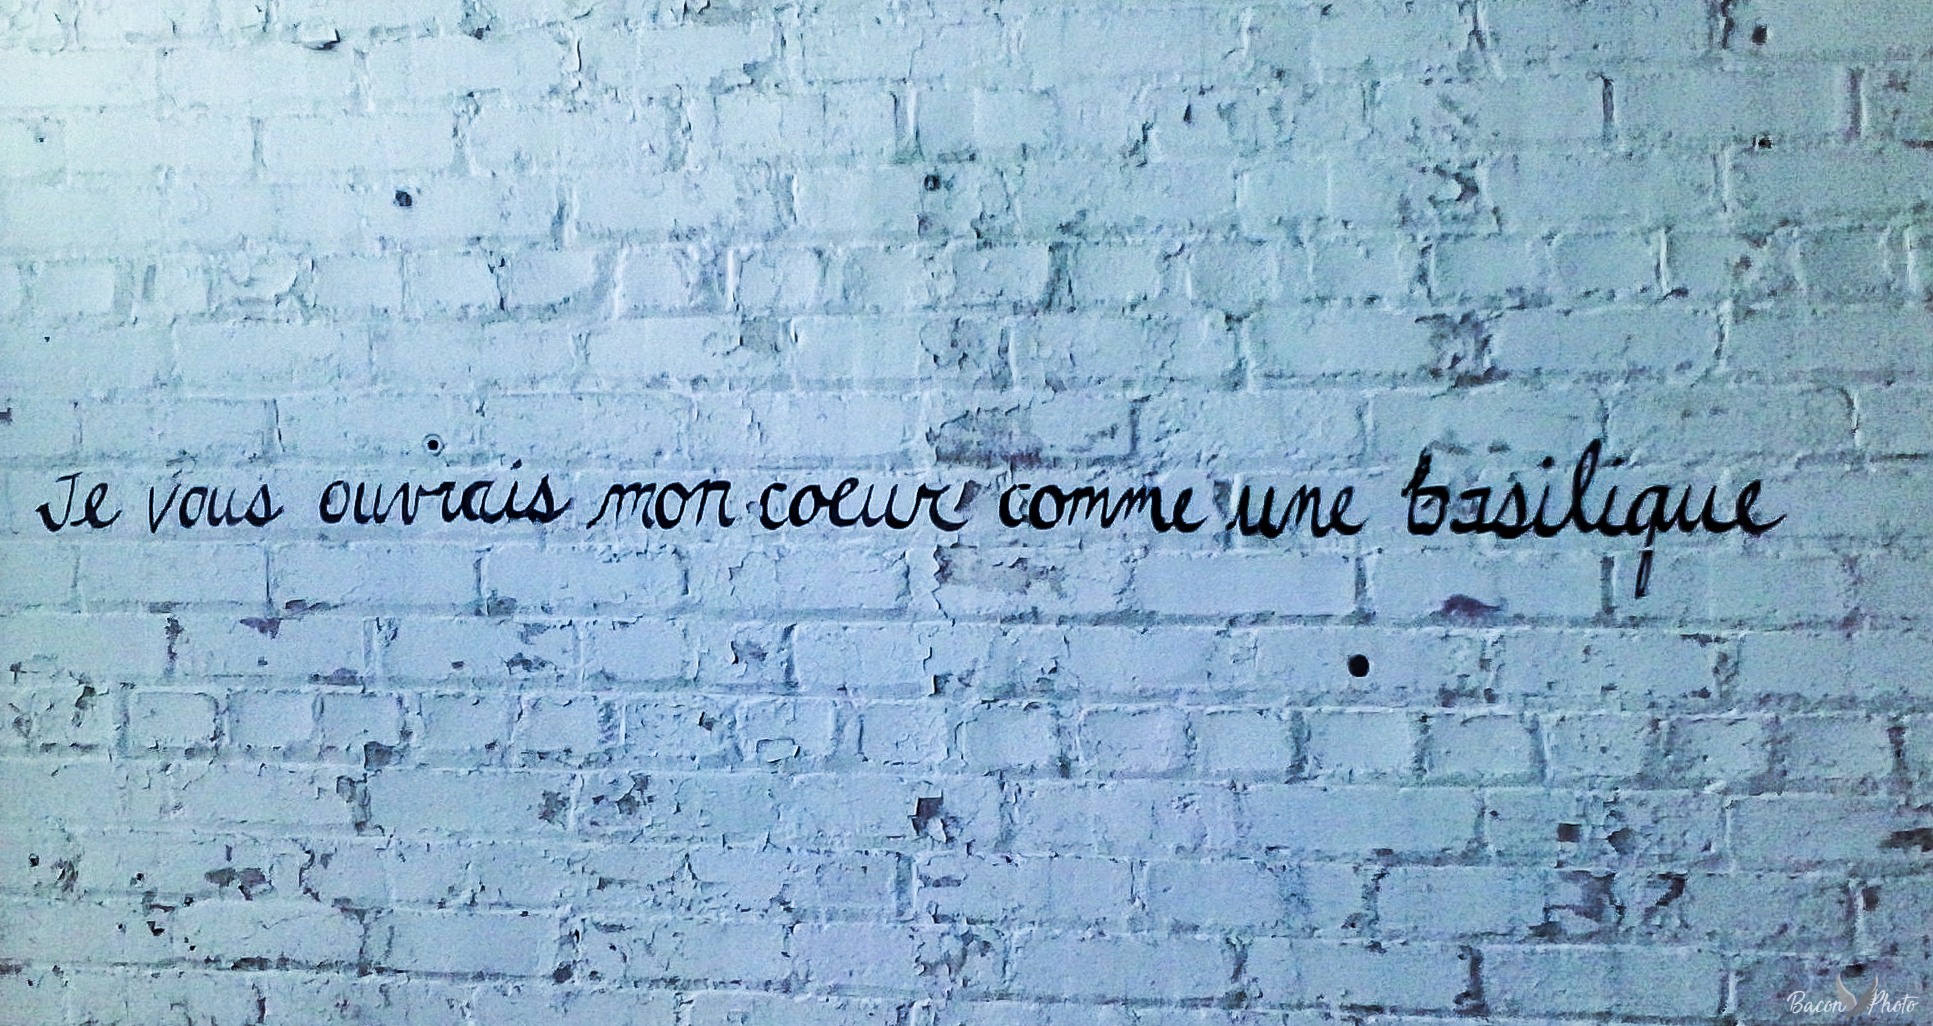 Je vous ouvrais mon coeur comme une basilique
Bacon Photo